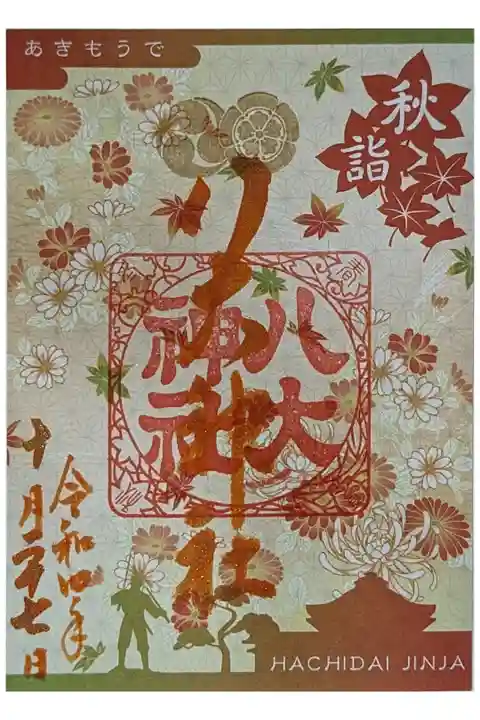 あきもうで
秋詣
八大神社
八大
神社
令和四年
十月二十七日
HACHIDAI JINJA